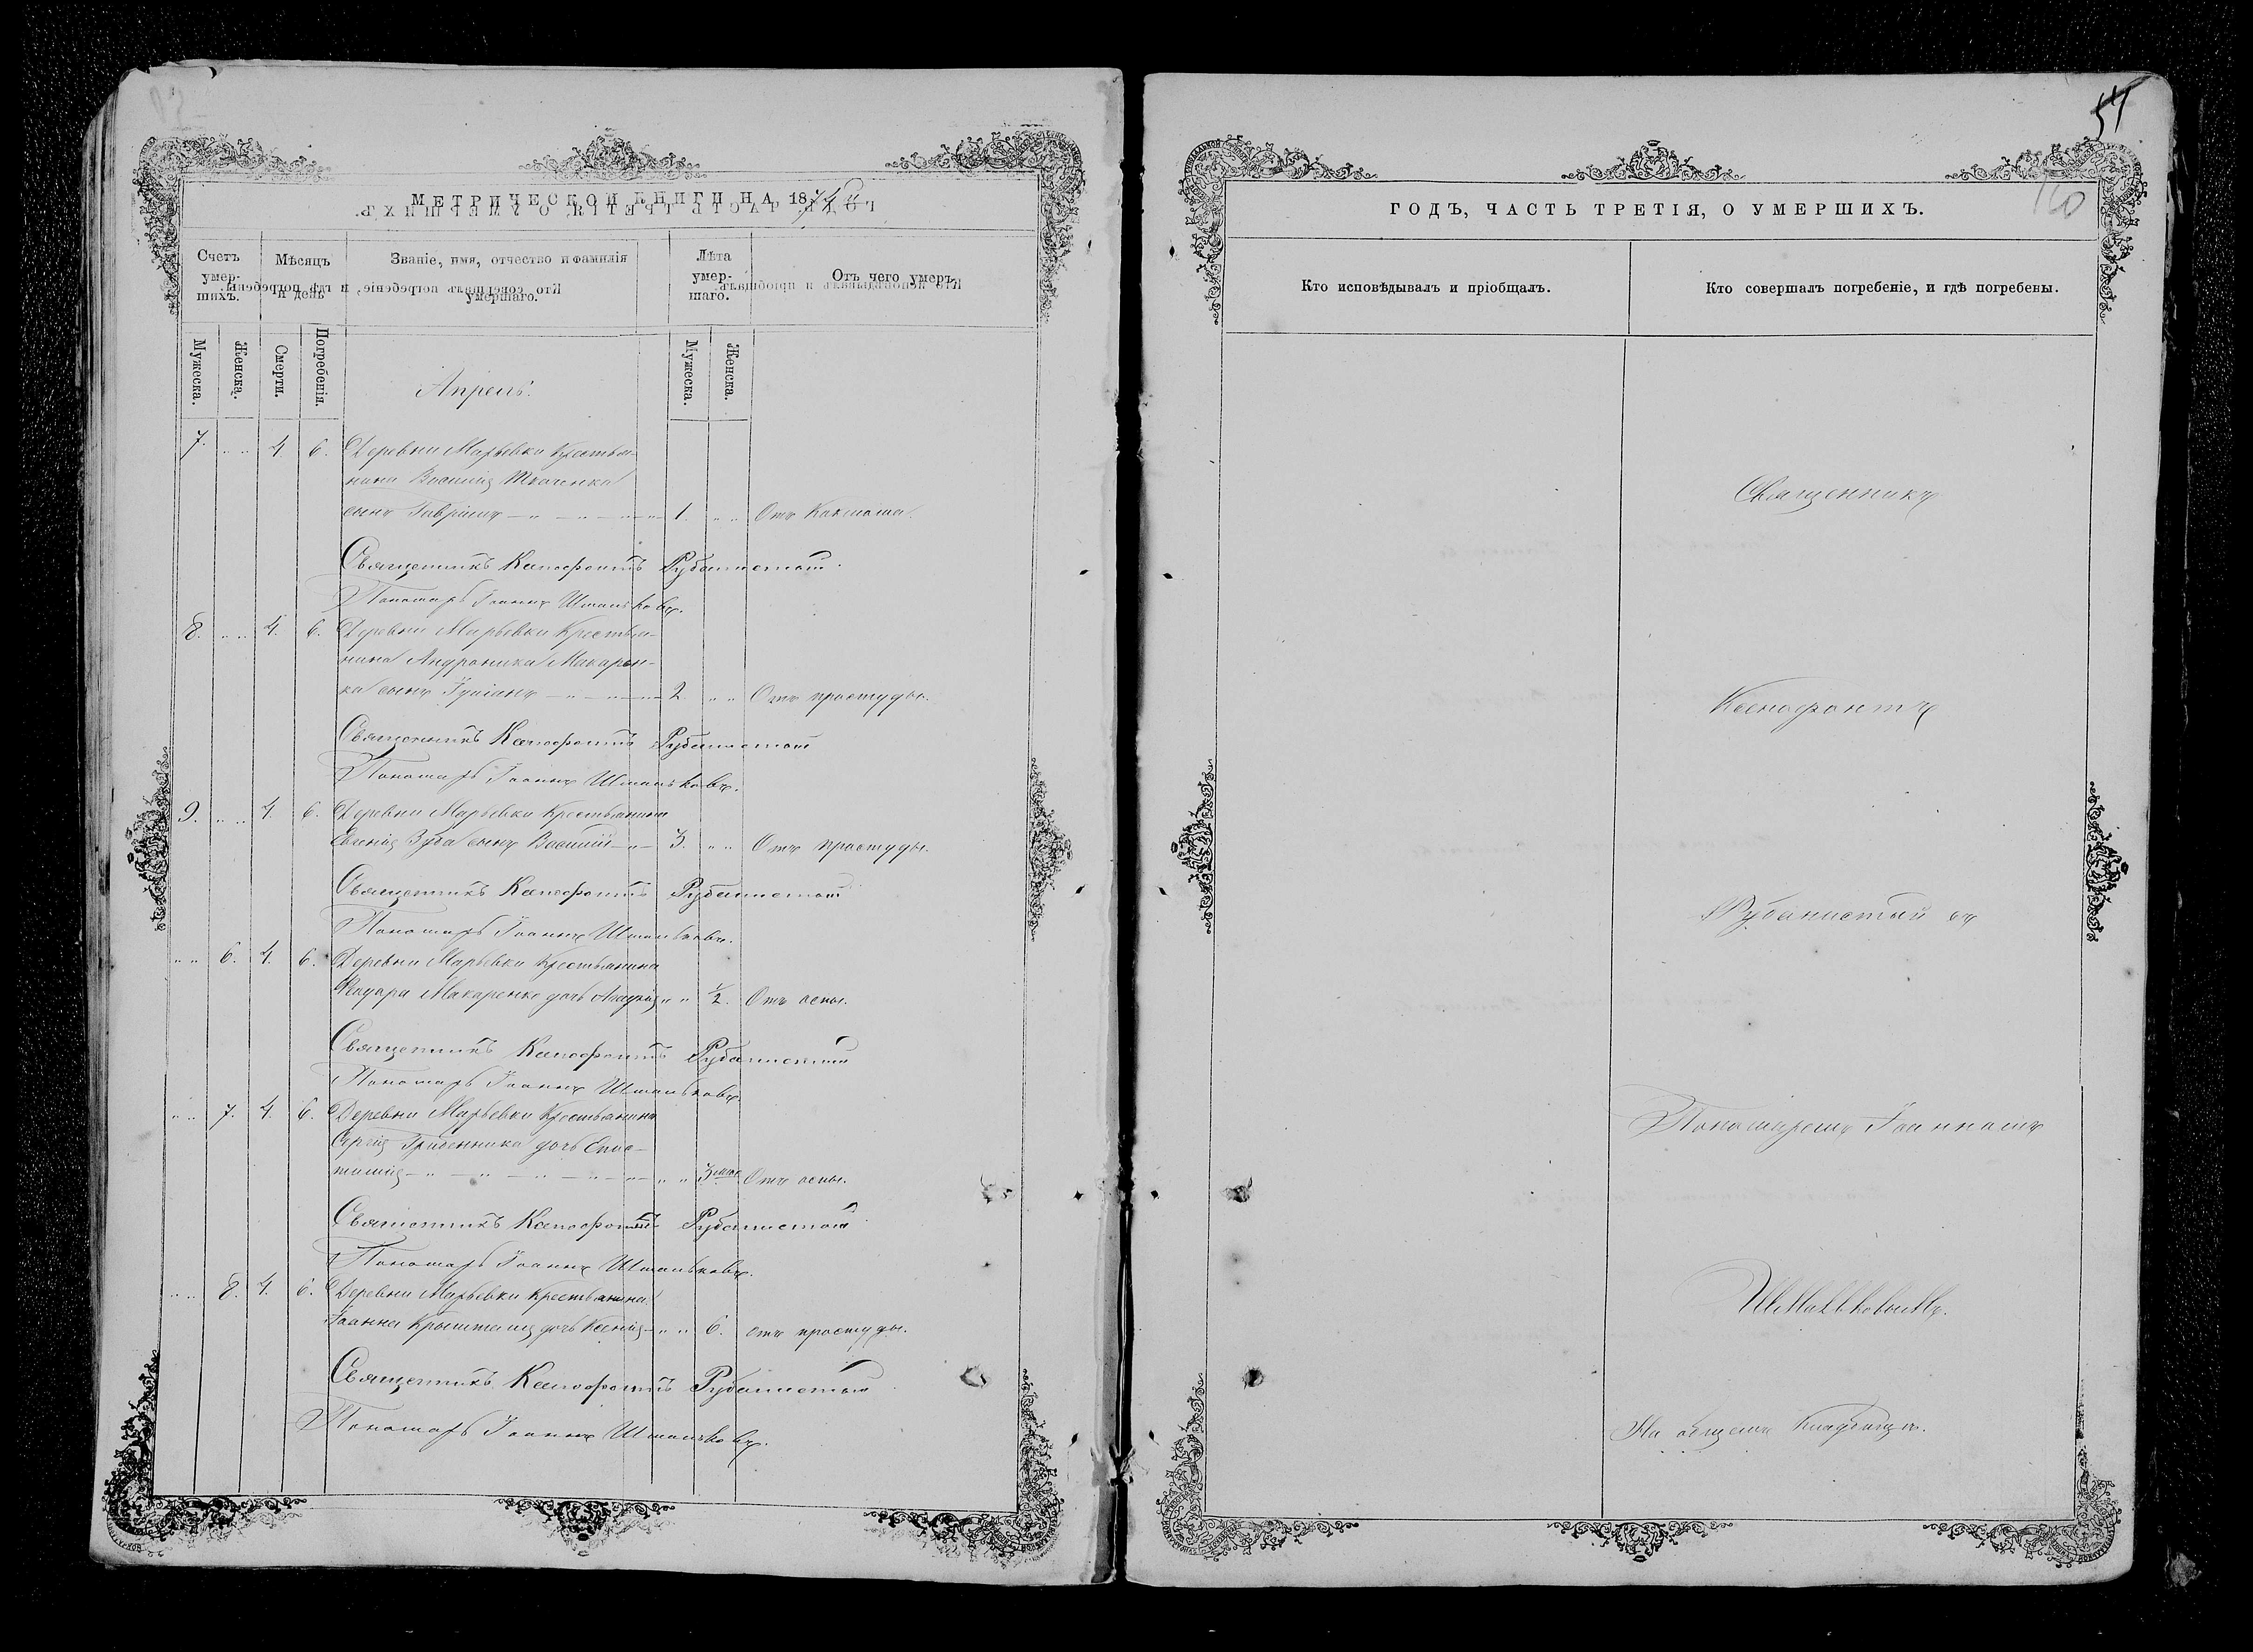 57
160
МЕТРИЧЕСКОЙ КНИГИ НА 1874й
Счетъ умер-шихъ.
Мѣсяцъ и день
Званіе, имя, отчество и фамилія умершаго.
Лѣта умер-шаго.
Отъ чего умеръ.
Мужеска.
Женска.
Смерти.
Погребенія.
Мужеска.
Женска.
Апрель.
7. „ „ 4. 6. Деревни Марьевки Крестья-
нина Василія Ткаченка
сынъ Гавріилъ 1. „ „ Отъ Коклюша.
Священникъ Ксенофонтъ Рубанистый
Пономарь Іоаннъ Шмальковъ.
8. „ „ 4. 6. Деревни Марьевки Крестья-
нина Андроника Макарен-
ка сынъ Іуліанъ 2. „ „ Отъ простуды.
Священникъ Ксенофонтъ Рубанистый
Пономарь Іоаннъ Шмальковъ.
9. „ „ 4. 6. Деревни Марьевки Крестьянина
Евгенія Зуба сынъ Василій 3. „ „ Отъ простуды.
Священникъ Ксенофонтъ Рубанистый
Пономарь Іоаннъ Шмальковъ.
„ „ 6. 4. 6. Деревни Марьевки Крестьянина
Макаренко дочь „ „ 1/2. Отъ оспы.
Священникъ Ксенофонтъ Рубанистый
Пономарь Іоаннъ Шмальковъ.
„ „ 7. 4. 6. Деревни Марьевки Крестьянина
Сергія Гребенника дочь Епис-
тимія „ „ 3 мѣс. Отъ оспы.
Священникъ Ксенофонтъ Рубанистый
Пономарь Іоаннъ Шмальковъ.
„ „ 8. 4. 6. Деревни Марьевки Крестьянина
Іоанна дочь Ксенія „ „ 6. отъ простуды.
Священникъ Ксенофонтъ Рубанистый
Пономарь Іоаннъ Шмальковъ.
ГОДЪ, ЧАСТЬ ТРЕТІЯ, О УМЕРШИХЪ.
Кто исповѣдывалъ и пріобщалъ.
Кто совершалъ погребеніе, и гдѣ погребены.
Священникъ
Ксенофонтъ
Рубанистый съ
Пономаремъ Іоанномъ
Шмальковымъ.
На общемъ Кладбищѣ.